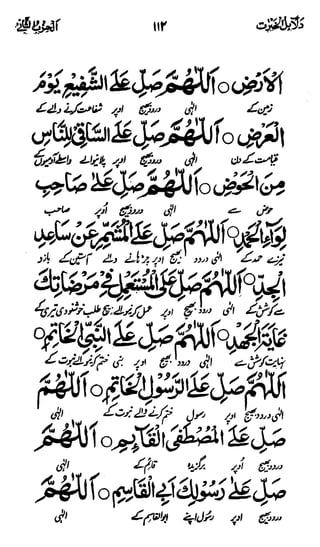 دلائل الخیرات ۱۱۲ الحزب الثانی
الْاَرْضِ ○ اَللّٰهُمَّ صَلِّ عَلَى الشَّفِيْعِ يَوْمَ
زمین کے الٰہی درود بھیج اوپر شفاعت کرنے والے کے
الْعَرْضِ ○ اَللّٰهُمَّ صَلِّ عَلَى السَّاقِيْ لِلنَّاسِ
قیامت کے دن الٰہی درود بھیج اوپر پلانیوالے واسطے آدمیوں کے
مِنَ الْحَوْضِ ○ اَللّٰهُمَّ صَلِّ عَلٰى صَاحِبِ
حوض سے الٰہی درود بھیج اوپر صاحب
لِوَآءِ الْحَمْدِ ○ اَللّٰهُمَّ صَلِّ عَلَى الْمُشَمِّرِ عَنْ سَاعِدِ
نیزے حمد کے الٰہی درود بھیج اوپر چڑھانے والے آستین کے بازو
الْجِدِّ ○ اَللّٰهُمَّ صَلِّ عَلَى الْمُسْتَعْمِلِ فِيْ مَرْضَاتِكَ
سے کوشش کے الٰہی درود بھیج اوپر عمل کرنیوالے کے بیچ طلب خوشنودی تیری کے
غَايَةَ الْجُهْدِ ○ اَللّٰهُمَّ صَلِّ عَلَى النَّبِيِّ الْخَاتِمِ ○
نہایت کوشش سے الٰہی درود بھیج اوپر نبی ختم کرنیوالے نبوت کے
اَللّٰهُمَّ صَلِّ عَلَى الرَّسُوْلِ الْخَاتِمِ ○ اَللّٰهُمَّ
الٰہی درود بھیج اوپر رسول ختم کرنے والے نبوت کے الٰہی
صَلِّ عَلَى الْمُصْطَفَى الْقَآئِمِ ○ اَللّٰهُمَّ
درود بھیج اوپر برگزیدہ قائم کے الٰہی
صَلِّ عَلٰى رَسُوْلِكَ اَبِي الْقَاسِمِ ○ اَللّٰهُمَّ
درود بھیج اوپر رسول اپنے ابوالقاسم کے الٰہی